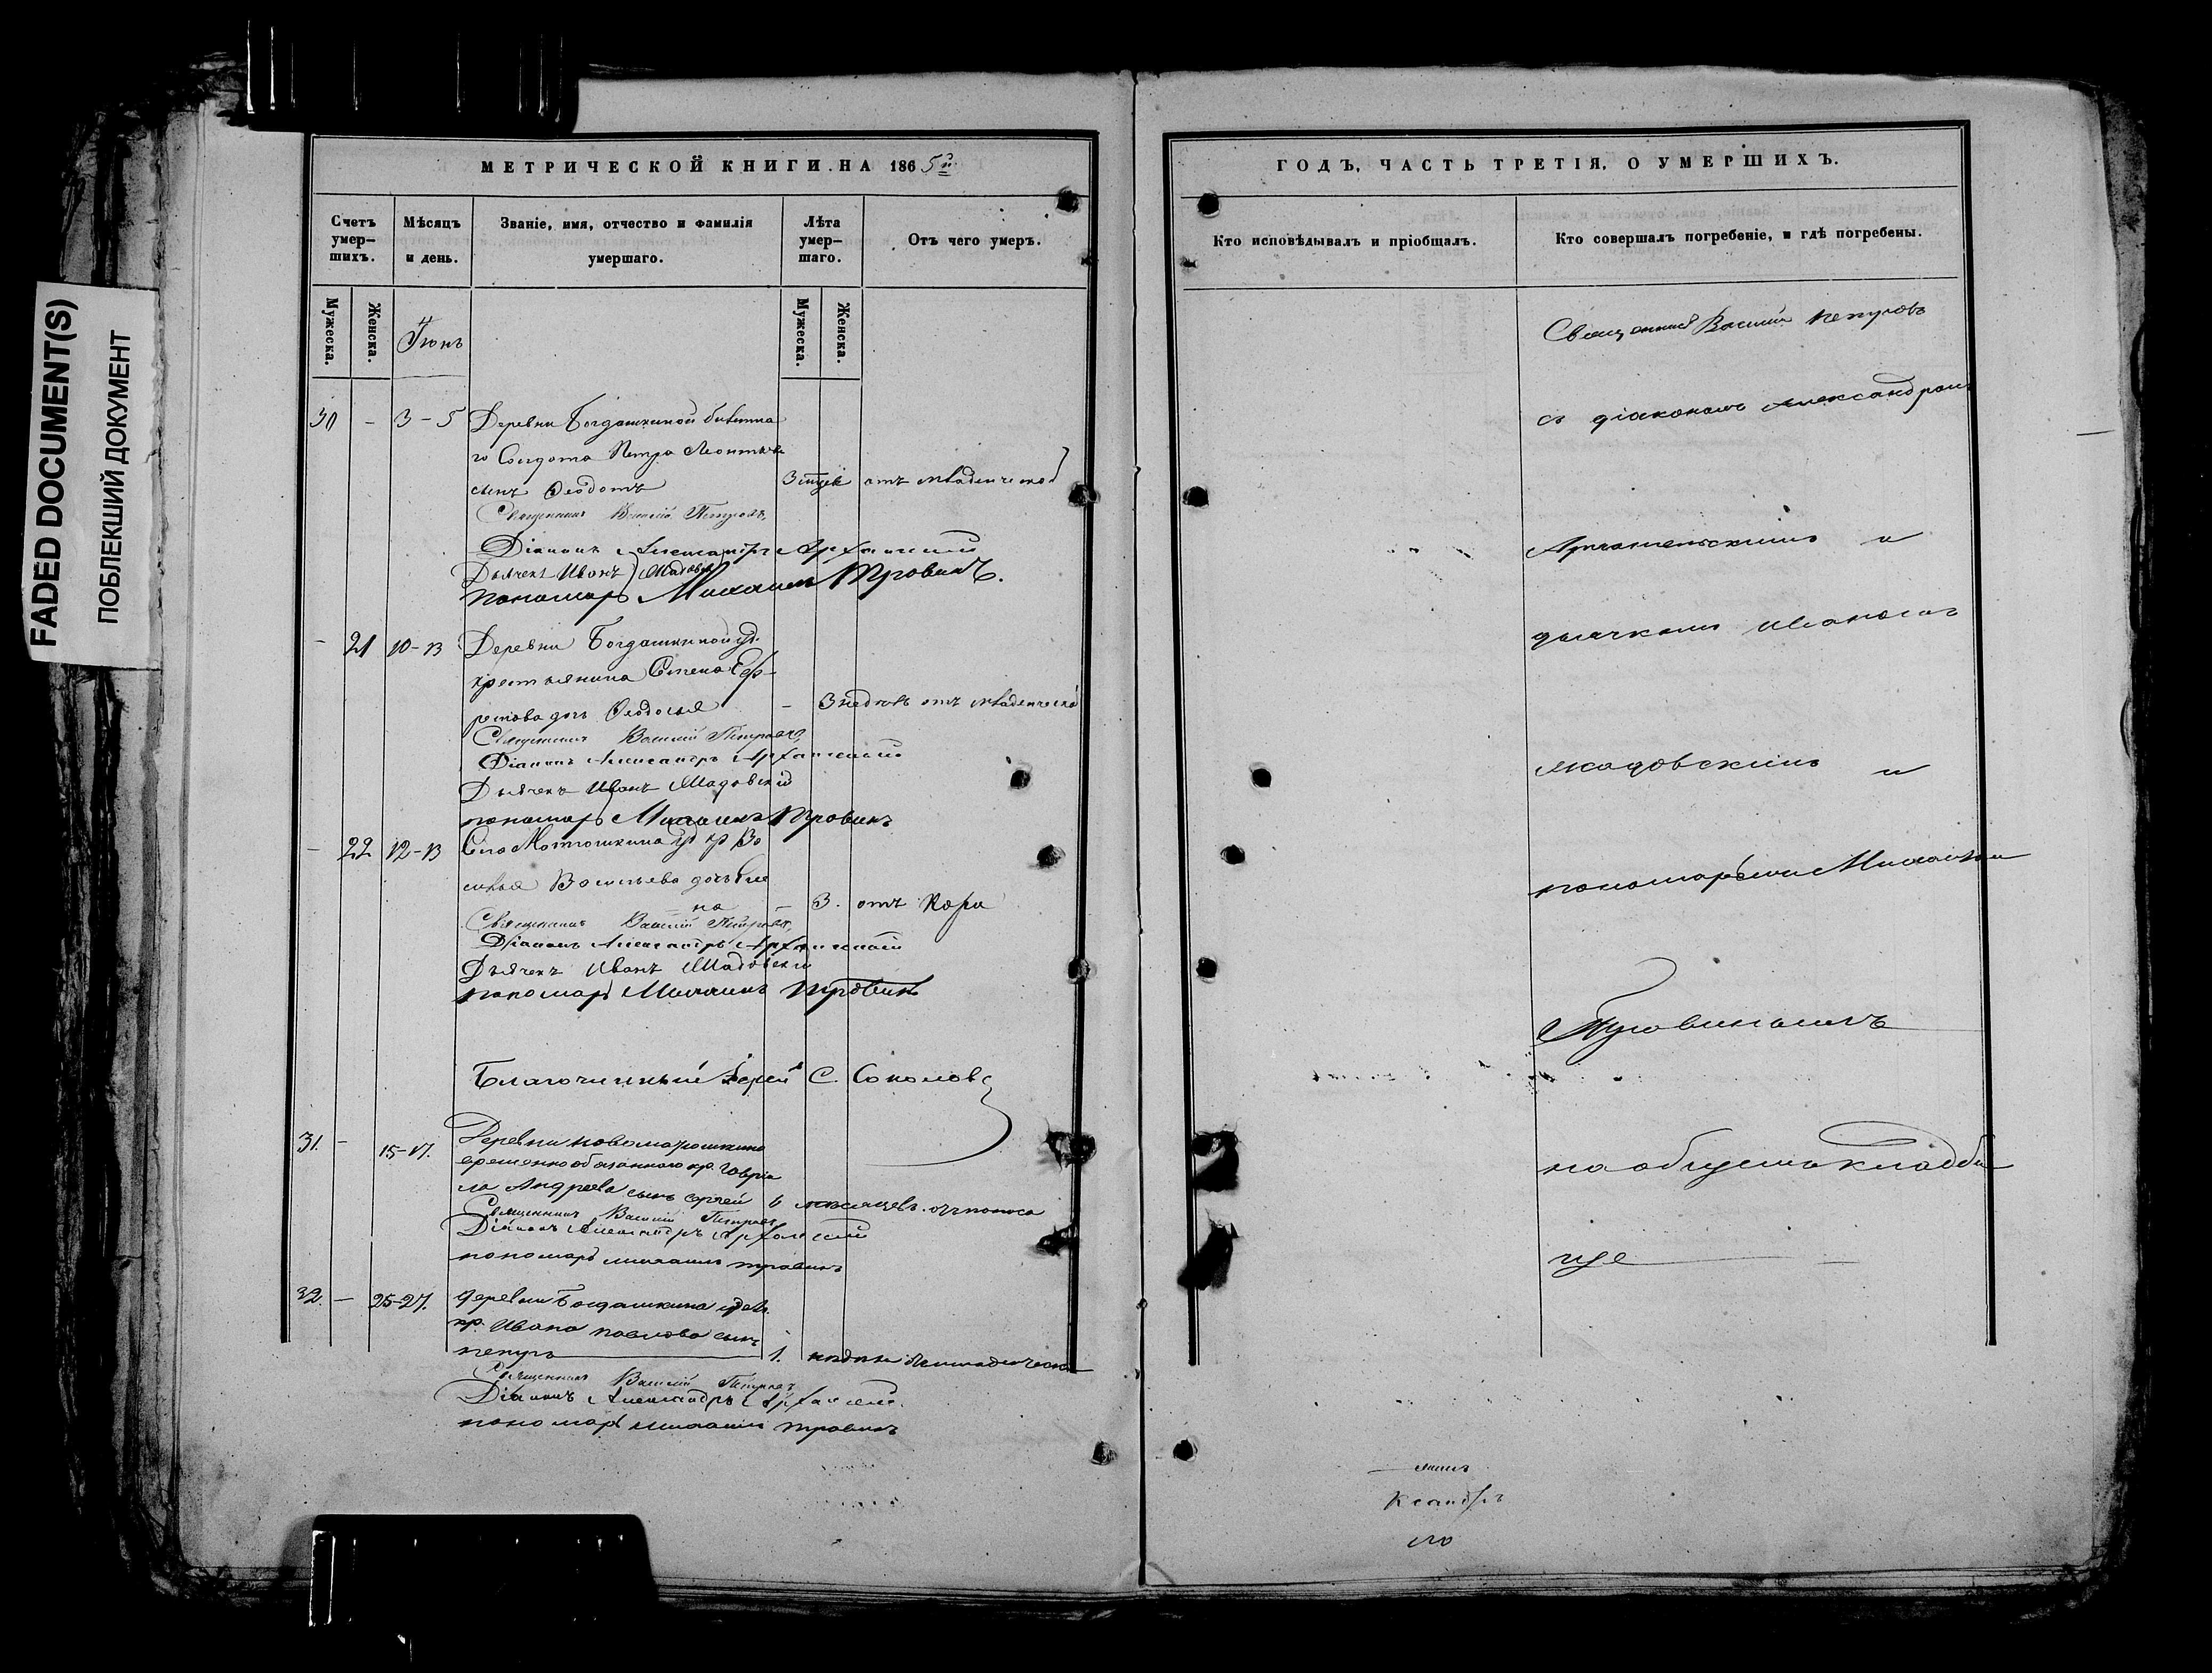 FADED DOCUMENT(S)
ПОБЛЕКШИЙ ДОКУМЕНТ
МЕТРИЧЕСКОЙ КНИГИ НА 1865й
Счетъ умер-шихъ.
Мѣсяцъ и день.
Званіе, имя, отчество и фамилія умершаго.
Лѣта умер-шаго.
Отъ чего умеръ.
Мужеска.
Женска.
Іюнь
Мужеска.
Женска.
30 - 3-5 Деревни Богдашкиной билетна
го Солдата Петра Леонтьева
сынъ Ѳеодотъ 3 отъ младенческой
Священникъ Василій Петровъ,
Діаконъ Александръ Архангельскій
Дьячекъ Иванъ
пономарь Михаилъ Травинъ.
- 21 10-13 Деревни Богдашкиной уд.
крестьянина Степана Еф-
ремова дочь Ѳеодосья - 3 недѣль отъ младенческой
Священникъ Василій Петровъ,
Діаконъ Александръ Архангельскій
Дьячекъ Иванъ
пономарь Михаилъ Травинъ
- 22 12-13 Села Матюшкина уд кр Ва
силья Васильева дочь Еле
на - 3. отъ Кори
Священникъ Василій Петровъ,
Діаконъ Александръ Архангельскій
Дьячекъ Иванъ
пономарь Михаилъ Травинъ
Благочинный Іерей С. Соколовъ
31. - 15-17. Деревни
временнообязаннаго кр. Гаврiи
ла Андреева сынъ Сергей 6 мѣсяцевъ. отъ поноса
Священникъ Василій Петровъ
Діаконъ Александръ Архангельскій
пономарь Михаилъ Травинъ
32. - 25-27. деревни Богдашкина удѣл.
кр. Ивана Павлова сынъ
Петръ 1. недѣли
Священникъ Василій Петровъ
Діаконъ Александръ Архангельскій
пономарь Михаилъ Травинъ
ГОДЪ, ЧАСТЬ ТРЕТІЯ, О УМЕРШИХЪ.
Кто исповѣдывалъ и пріобщалъ.
Кто совершалъ погребеніе, и гдѣ погребены.
Священникъ Василій Петровъ
съ діакономъ Александромъ
Архангельскимъ и
дьячкомъ Иваномъ
и
пономаремъ Михаиломъ
Травинымъ
на общемъ кладби
ще